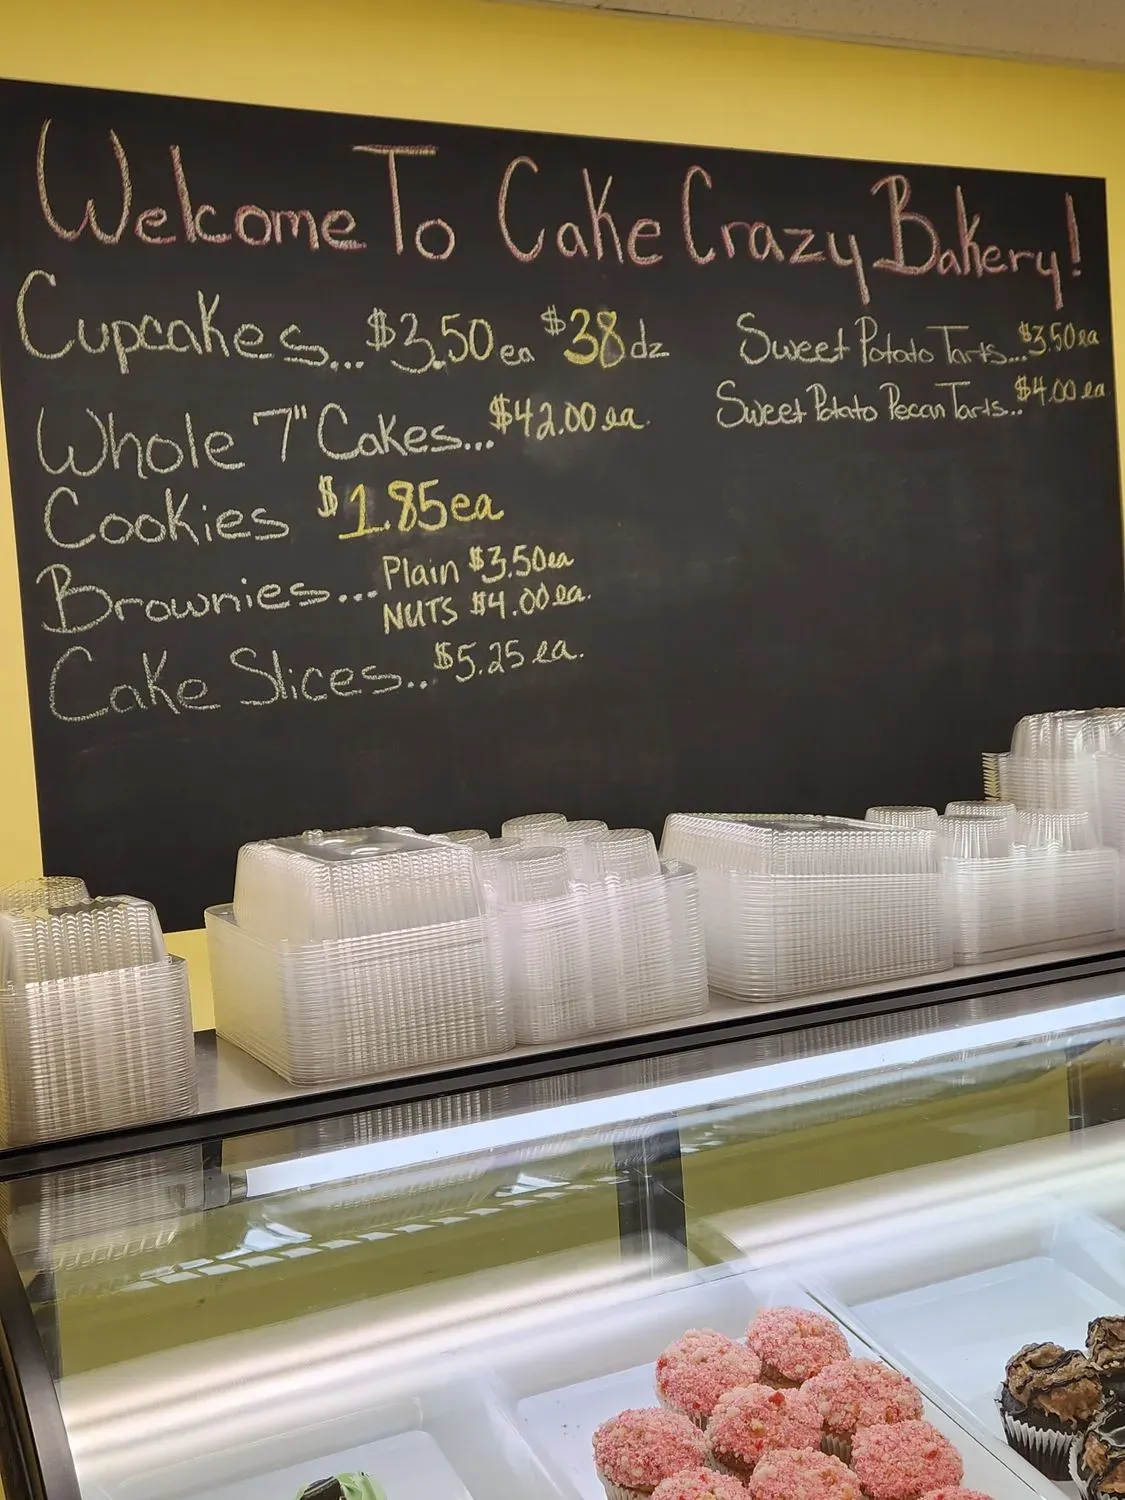 Welcome To Cake Crazy Bakery!
Cupcakes...$3.50 ea $38 dz
Whole 7" Cakes...$42.00 ea.
Cookies $1.85 ea
Brownies...Plain $3.50 ea
NUTS $4.00 ea.
Cake Slices...$5.25 ea.
Sweet Potato Tarts...$3.50 ea
Sweet Potato Pecan Tarts..$4.00 ea.